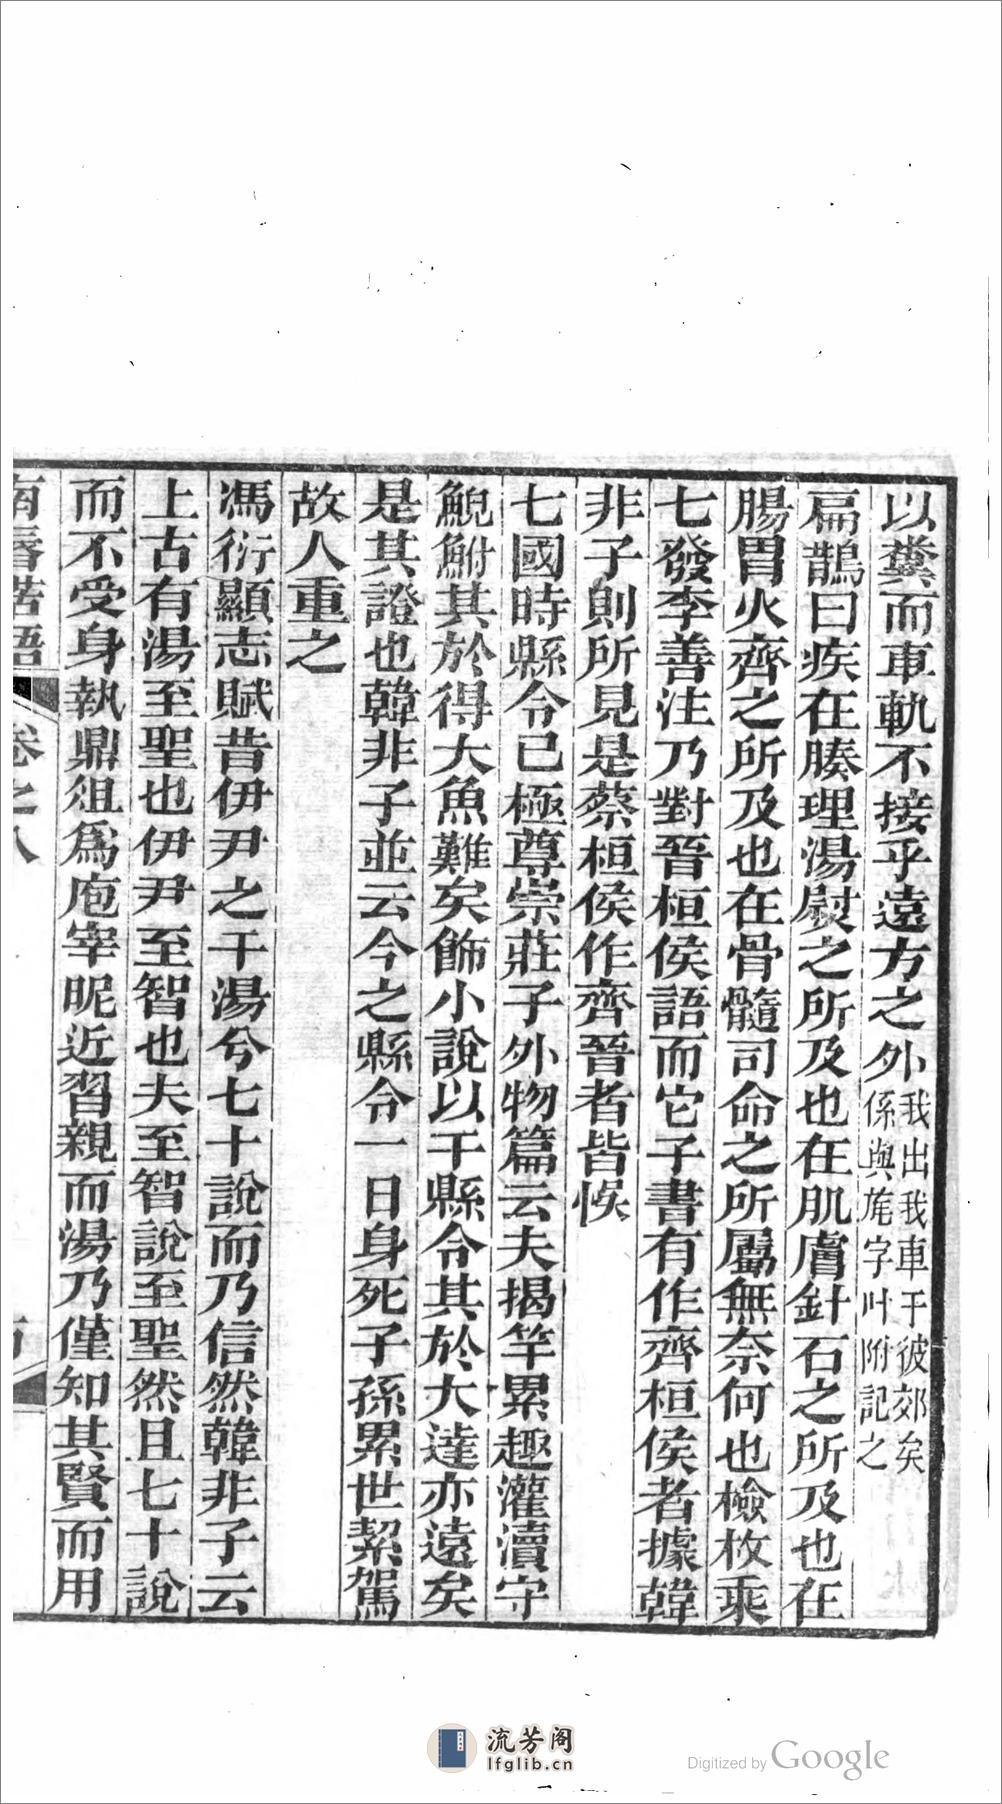 以糞而車軌不接乎遠方之外我出我車于彼郊矣係與旄字叶附記之
扁鵲曰疾在腠理湯熨之所及也在肌膚針石之所及也在
腸胃火齊之所及也在骨髓司命之所屬無奈何也檢枚乘
七發李善注乃對晉桓侯語而它子書有作齊桓侯者據韓
非子則所見是蔡桓侯作齊晉者皆悞
七國時縣令已極尊崇莊子外物篇云夫揭竿累趣灌瀆守
鯢鮒其於得大魚難矣飾小說以干縣令其於大達亦遠矣
是其證也韓非子並云今之縣令一日身死子孫累世絜駕
故人重之
馮衍顯志賦昔伊尹之干湯兮七十說而乃信然韓非子云
上古有湯至聖也伊尹至智也夫至智說至聖然且七十說
而不受身執鼎俎爲庖宰昵近習親而湯乃僅知其賢而用
南漘楛語
卷之八
流芳阁
lfglib.cn
Digitized by Google